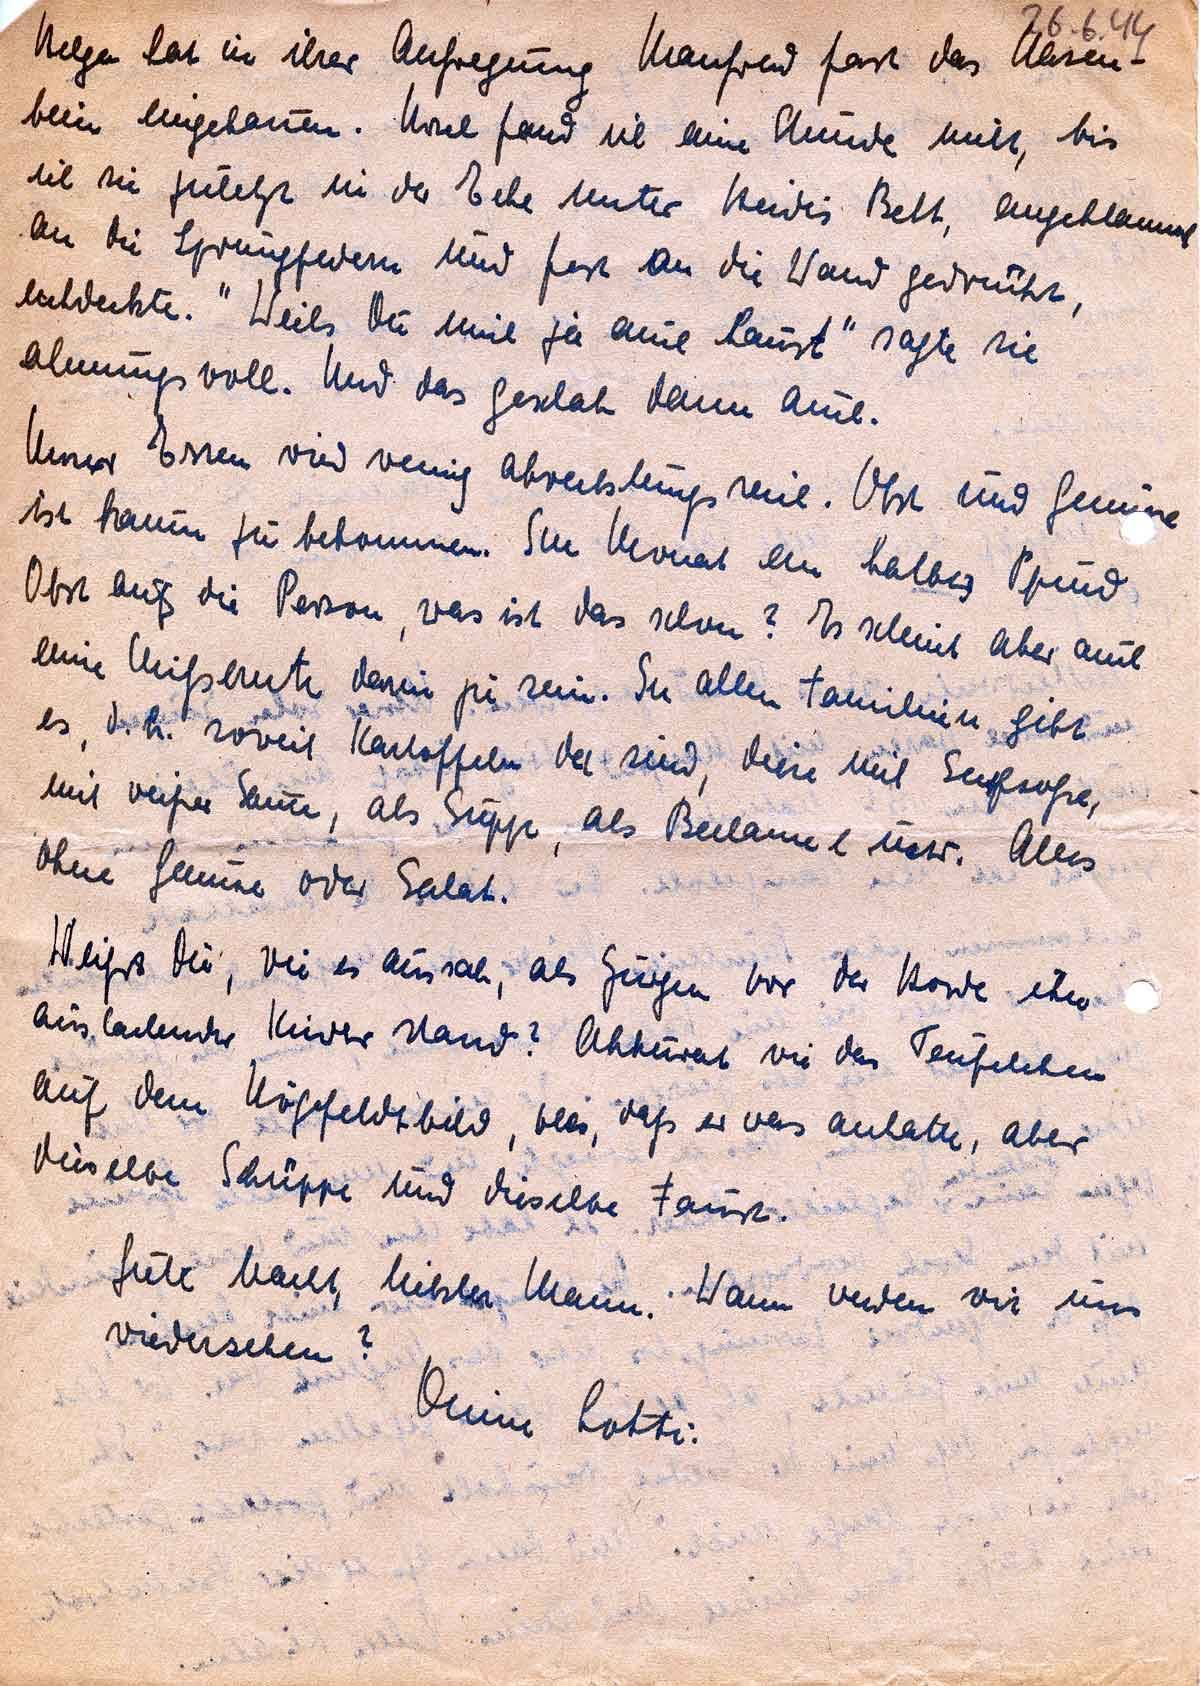 26.6.44
Helga hat in ihrer Aufregung Manfred fast das Nasen-
bein eingehauen. Usel fand ich eine Stunde nicht, bis
ich sie zuletzt in der Ecke unter Heidis Bett, angeklammert
an die Sprungfedern und fest an die Wand gedrückt,
entdeckte. "Weils Du mich ja auch haust" sagte sie
ahnungsvoll. Und das geschah dann auch.
Unser Essen wird wenig abwechslungsreich. Obst und Gemüse
ist kaum zu bekommen. Im Monat ein halbes Pfund
Obst auf die Person, was ist das schon? Es scheint aber auch
eine Mißernte darin zu sein. In allen Familien gibt
es, d.h. soweit Kartoffeln da sind, diese mit Senfsoße,
mit weißer Sauce, als Suppe, als Bechamel usw. Alles
ohne Gemüse oder Salat.
Weißt Du, wie es aussah, als Jürgen vor der Horde ihn
auslachender Kinder stand? Akkurat wie das Teufelchen
auf dem bild, bloß, daß er was anhatte, aber
dieselbe Schüppe und dieselbe Faust.
Gute Nacht, liebster Mann. Wann werden wir uns
wiedersehen?
Deine Lotti.